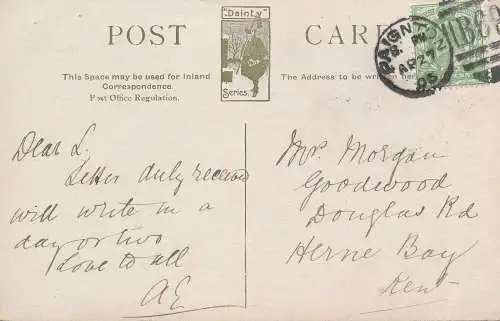 POST CARD
"Dainty"
Series.
This Space may be used for Inland
Correspondence.
Post Office Regulation.
The Address to be written her
PAIGN
AP 27
05
Dear L.
Letter duly received
will write in a
day or two
Love to all
AE
Mr. Morgan
Goodwood
Douglas Rd
Herne Bay
Kent